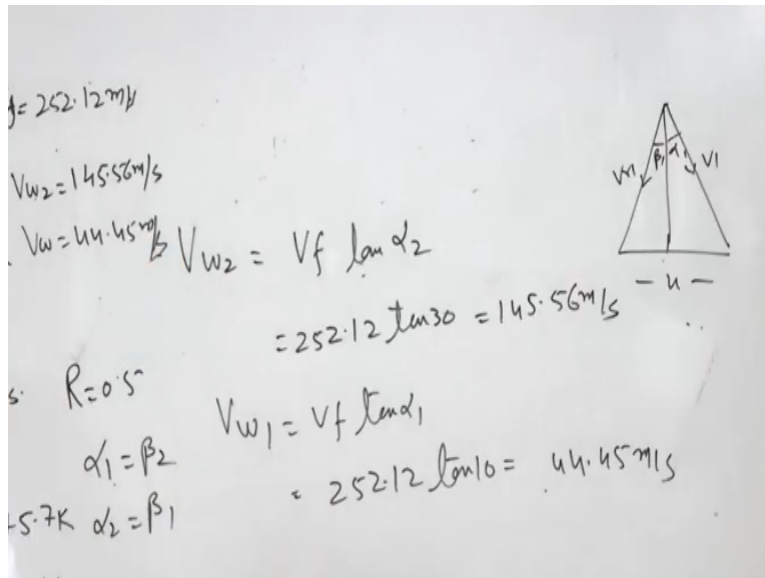 f=252.12m/s
Vw2=145.56m/s
Vw=44.45m/s
Vw2 = Vf tan α2
=252.12 tan30 =145.56m/s
β1 α1
Vr1 V1
- u -
s. R=0.5
α1=β2
5.7K α2=β1
Vw1=Vf tanα1
= 252.12 tan10= 44.45m/s